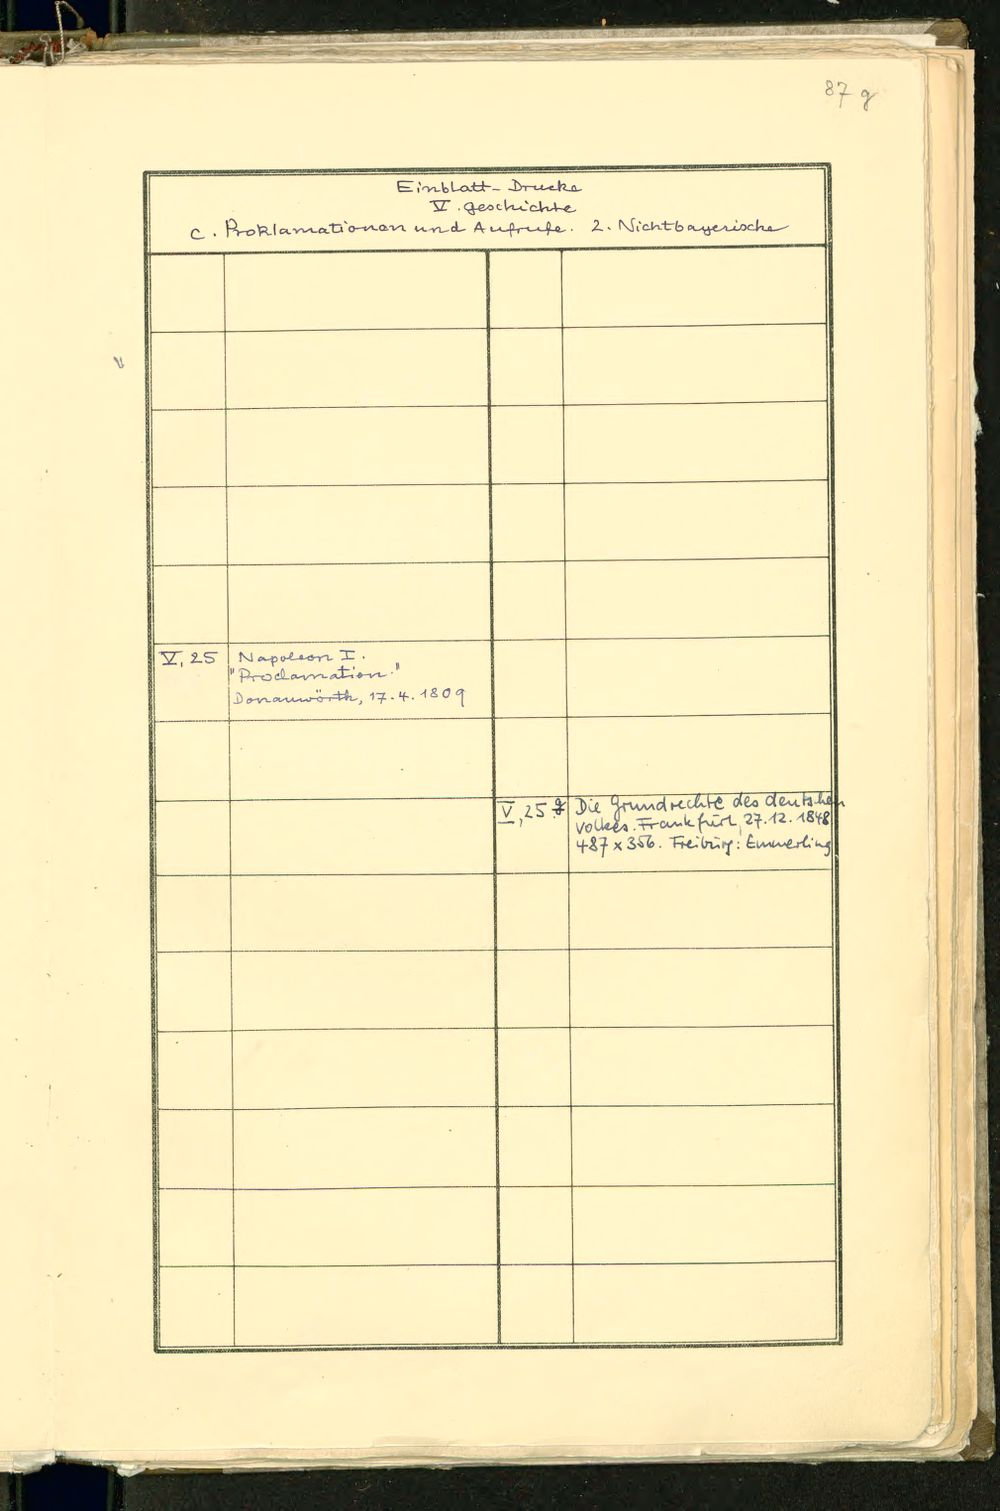 87 g
Einblatt-Drucke
V. Geschichte
c. Proklamationen und Aufrufe. 2. Nichtbayerische
V, 25
Napoleon I.
"Proclamation."
Donauwörth, 17.4.1809
V, 25 g
Die Grundrechte des deutschen
Volkes. Frankfurt, 27.12.1848
487 x 356. Freiburg: Emmerling